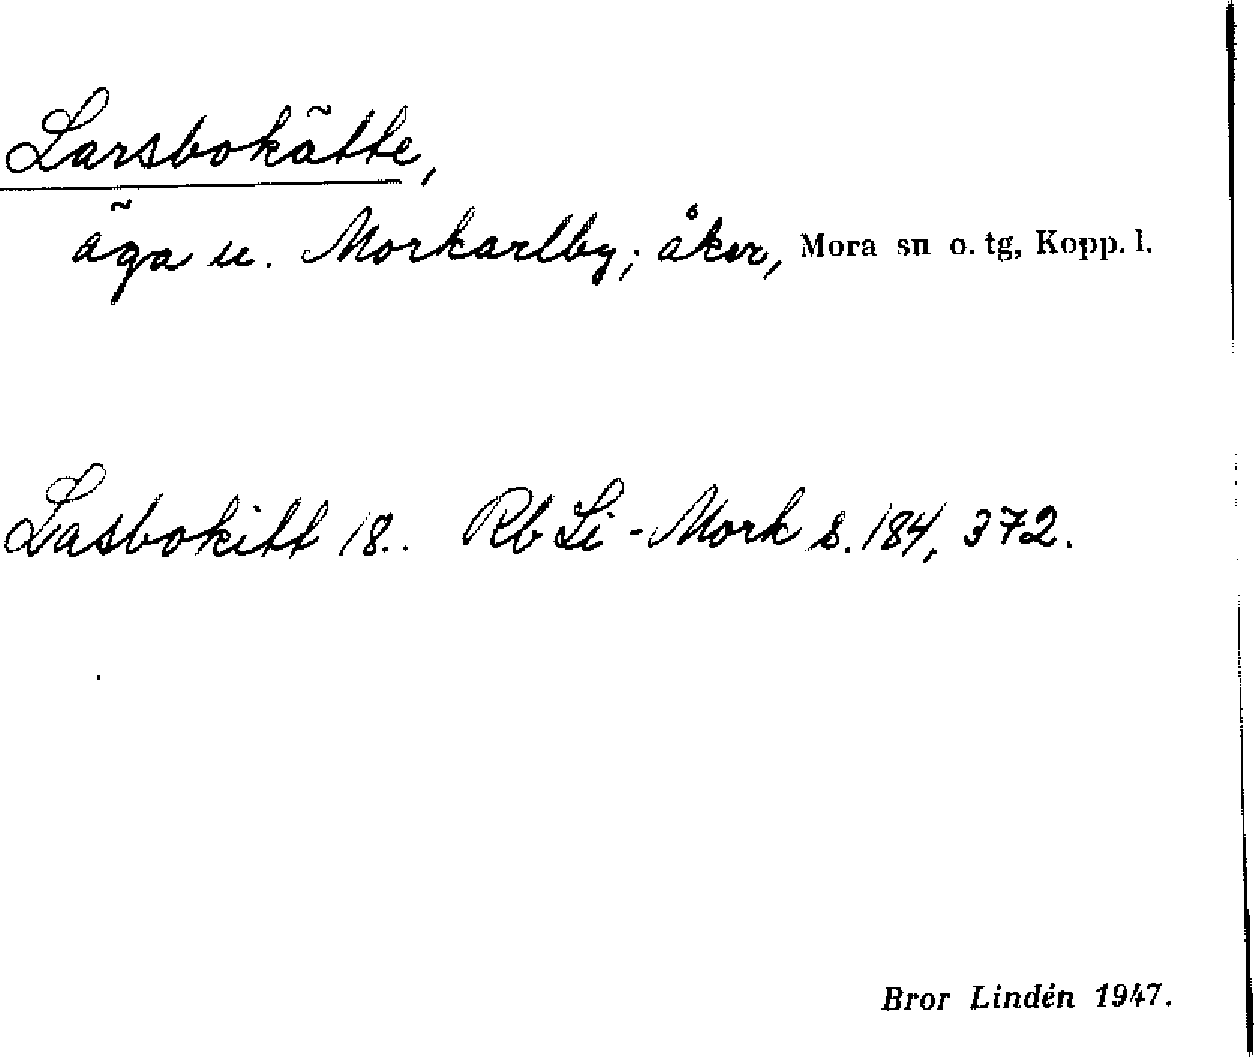 Larsbokätte,
äga u. Morkarlby; åker, Mora sn o. tg, Kopp. l.
Lasbokitt 18.. Rb Li - Mork s. 184, 372.
Bror Lindén 1947.